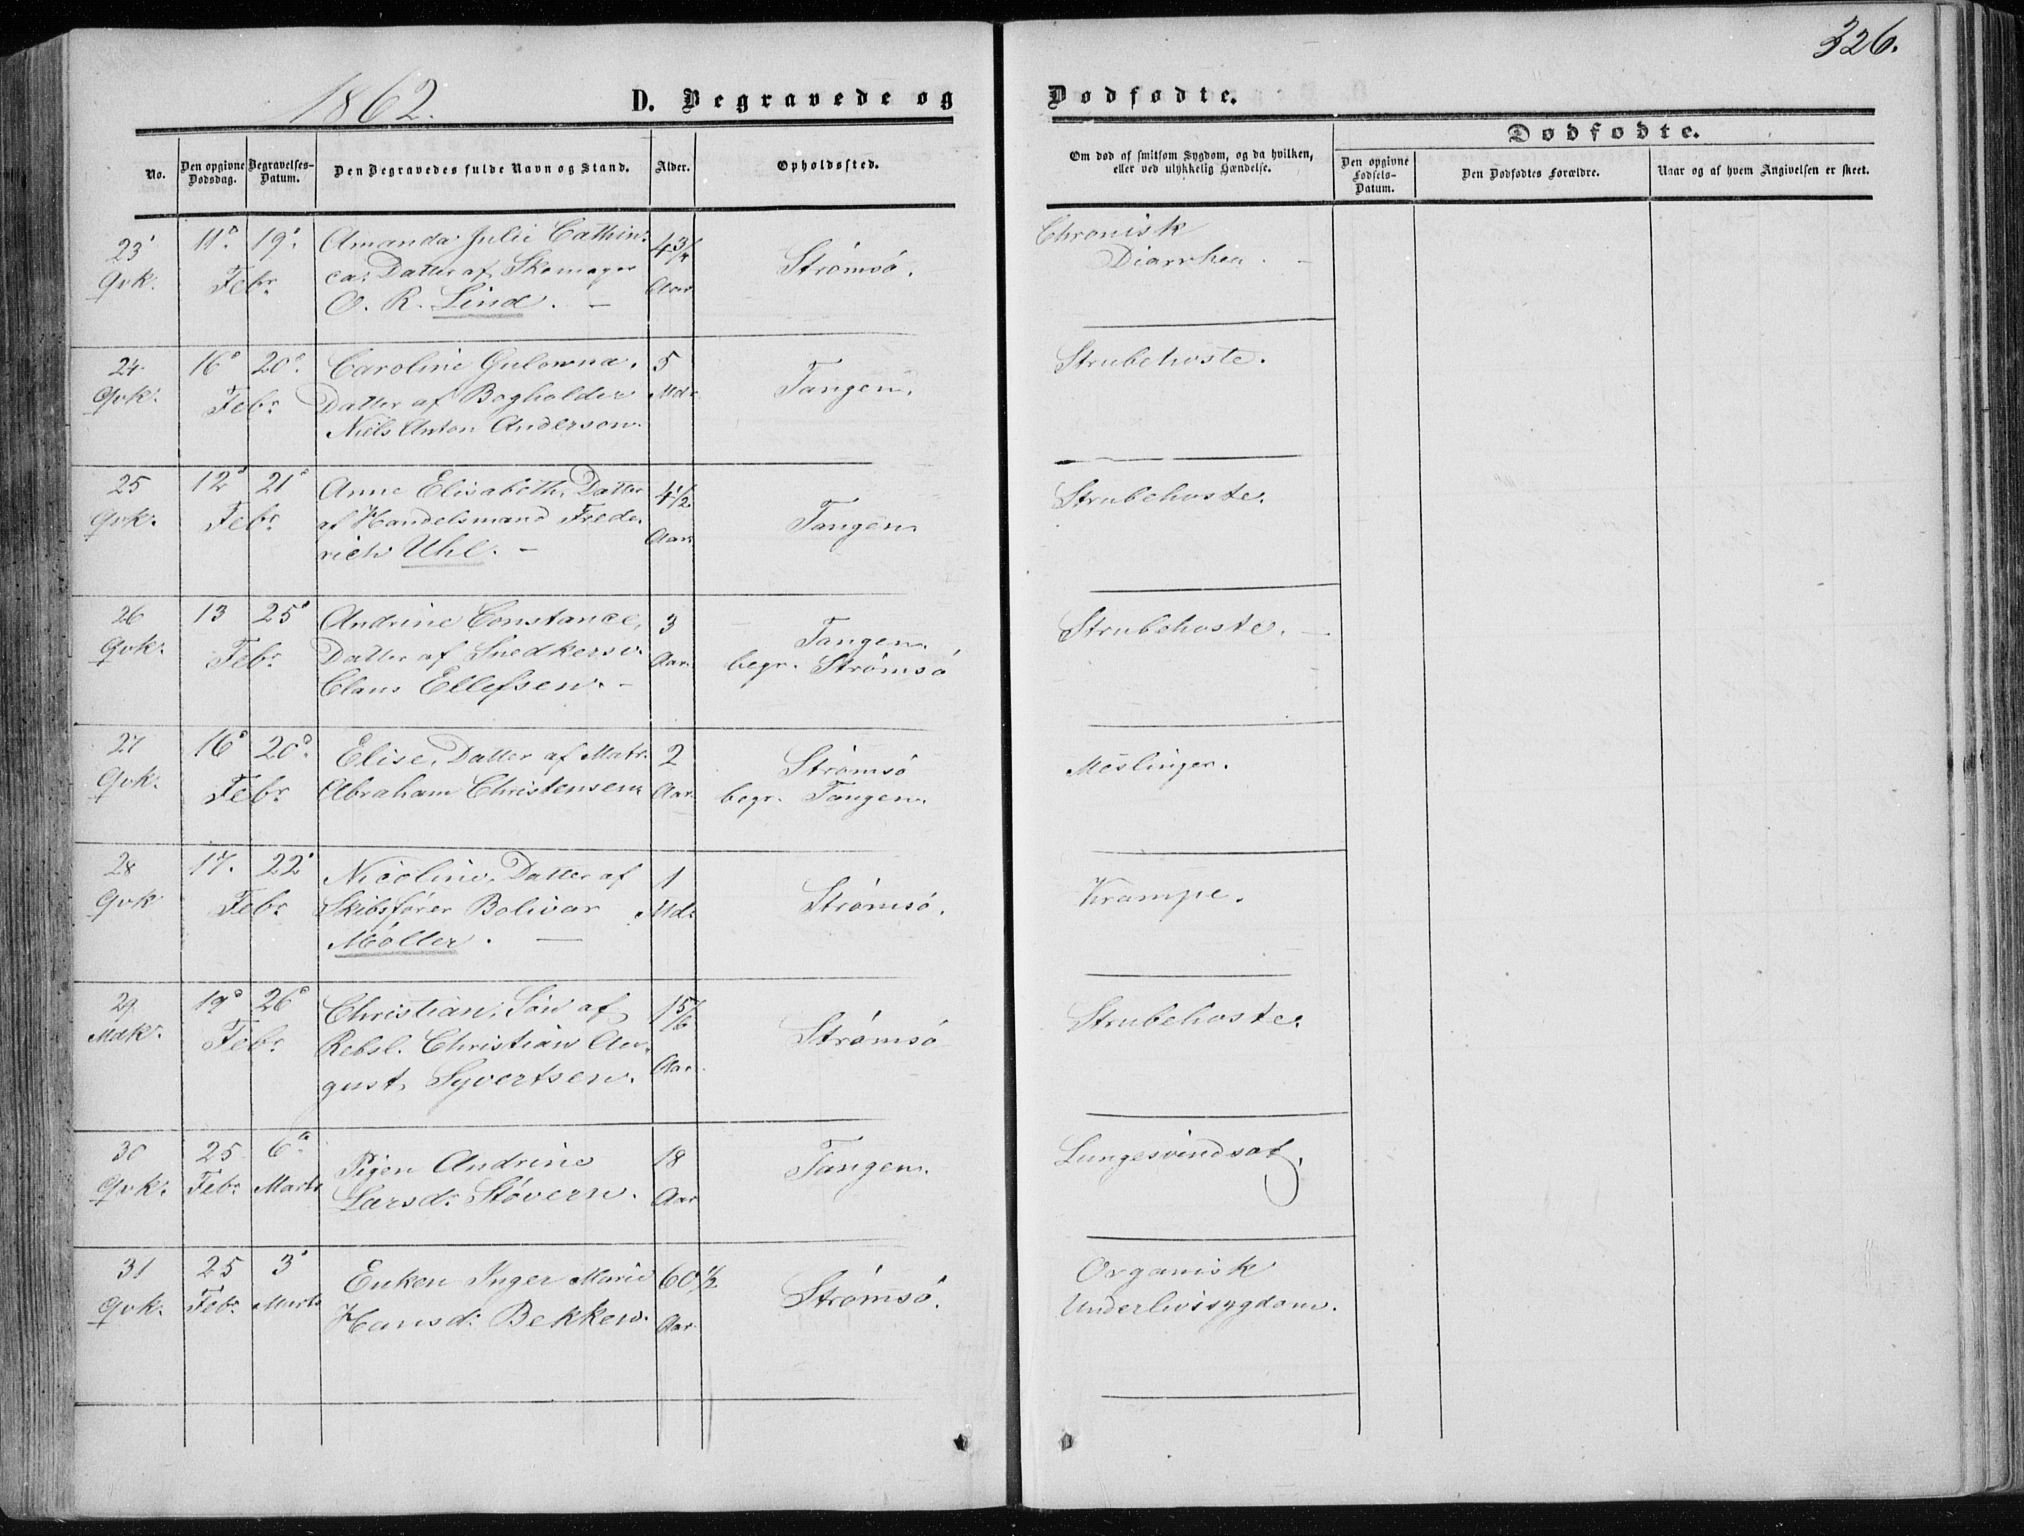 326.
1862.
D. Begravede og Dødfødte.
Dødfødte.
No.
Den opgivne Dødsdag.
Begravelses-Datum.
Den Begravedes fulde Navn og Stand.
Alder.
Opholdssted.
Om død af smitsom Sygdom, og da hvilken,
eller ved ulykkelig Hændelse.
Den opgivne Fødsels-Datum.
Den Dødfødtes Forældre.
Naar og af hvem Angivelsen er skeet.
23 11 19 Amanda Julie Cathin- 4 3/4 Strømsø. Chronisk
Qvk. Febr ca, Datter af Skomager Aar Diarrhea.
O. R. Lind. –
24 16 20 Caroline Gulowna, 5 Tangen. Strubehoste.
Qvk. Febr Datter af Bogholder Mdr
Niels Anton Anderson.
25 12 21 Anne Elisabeth, Datter 4 1/2 Tangen Strubehoste.
Qvk. Febr af Handelsmand Frede- Aar
rich Uhl. –
26 13 25 Andrine Constance, 3 Tangen. Strubehoste. –
Qvk. Febr Datter af Snedkersv. Aar. begr. Strømsö
Claus Ellefsen. –
27 16 20 Elise, Datter af Matr. 2 Strømsö Meslinger.
Qvk. Febr Abraham Christensen Aar begr. Tangen.
28 17. 22 Nicoline, Datter af 1 Strømsö. Krampe.
Qvk Febr Skibsfører Bolivar Md.
Møller. –
29 19 26 Christian, Søn af 1 5/6 Strømsö Strubehoste.
Mdk. Febr Rebsl. Christian Au- Aar
gust Syvertsen.
30 25 6 Pigen Andrine 18 Tangen. Lungesvindsot.
Qvk. Febr Marts Larsd. Støvern. Aar
31 25 3 Enken Inger Marie 60 1/2 Strømsö. Organisk
Qvk. Febr Marts Hansd. Bekken. Aar Underlivssygdom.